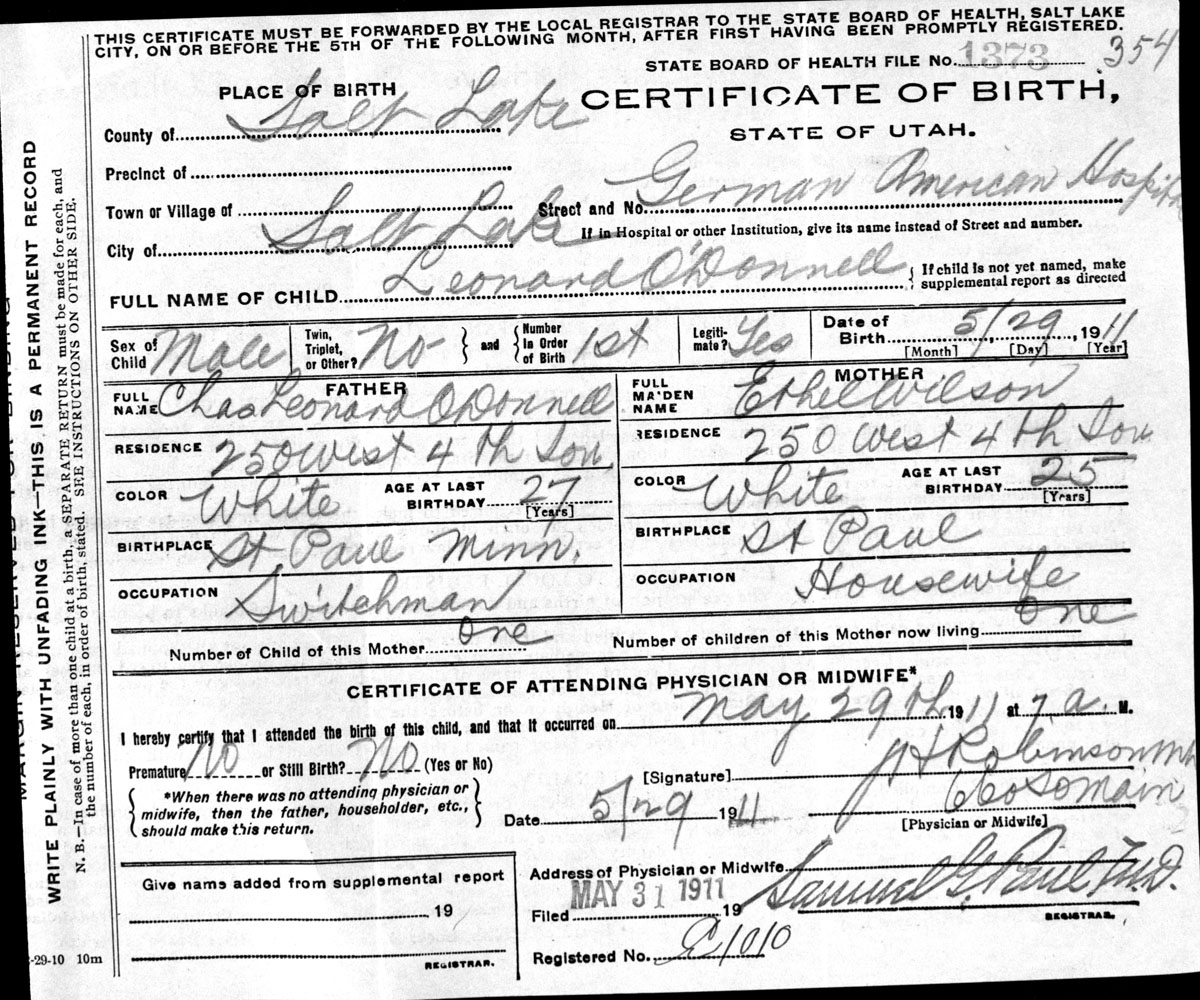 THIS CERTIFICATE MUST BE FORWARDED BY THE LOCAL REGISTRAR TO THE STATE BOARD OF HEALTH, SALT LAKE
CITY, ON OR BEFORE THE 5TH OF THE FOLLOWING MONTH, AFTER FIRST HAVING BEEN PROMPTLY REGISTERED.
STATE BOARD OF HEALTH FILE No. 1373 354
PLACE OF BIRTH
CERTIFICATE OF BIRTH,
STATE OF UTAH.
County of Salt Lake
Precinct of
Town or Village of
Street and No. German American Hospital
City of Salt Lake
If in Hospital or other Institution, give its name instead of Street and number.
FULL NAME OF CHILD Leonard O'Donnell { If child is not yet named, make
supplemental report as directed
Sex of Child Male Twin, Triplet, or Other? No } and { Number in Order of Birth 1st Legiti-mate? Yes Date of Birth 5/29, 1911
[Month] [Day] [Year]
FATHER MOTHER
FULL NAME Chas Leonard O'Donnell FULL MAIDEN NAME Ethel Wilson
RESIDENCE 250 West 4th Sou RESIDENCE 250 West 4th Sou
COLOR White AGE AT LAST BIRTHDAY 27 [Years] COLOR White AGE AT LAST BIRTHDAY 25 [Years]
BIRTHPLACE St Paul Minn. BIRTHPLACE St Paul
OCCUPATION Switchman OCCUPATION Housewife
Number of Child of this Mother One Number of children of this Mother now living One
CERTIFICATE OF ATTENDING PHYSICIAN OR MIDWIFE*
I hereby certify that I attended the birth of this child, and that it occurred on May 29th, 1911 at 7 a. M.
Premature No or Still Birth? No (Yes or No)
[Signature] Robinson
{ *When there was no attending physician or
midwife, then the father, householder, etc.,
should make this return. }
Date 5/29 1911
[Physician or Midwife]
Address of Physician or Midwife
Filed MAY 31 1911 19 Samuel G. Paul, M.D.
REGISTRAR.
Registered No. 1010
Give name added from supplemental report
19
REGISTRAR.
-29-10 10m
MARGIN RESERVED FOR BINDING
WRITE PLAINLY WITH UNFADING INK—THIS IS A PERMANENT RECORD
N. B.—In case of more than one child at a birth, a SEPARATE RETURN must be made for each, and
the number of each, in order of birth, stated. SEE INSTRUCTIONS ON OTHER SIDE.